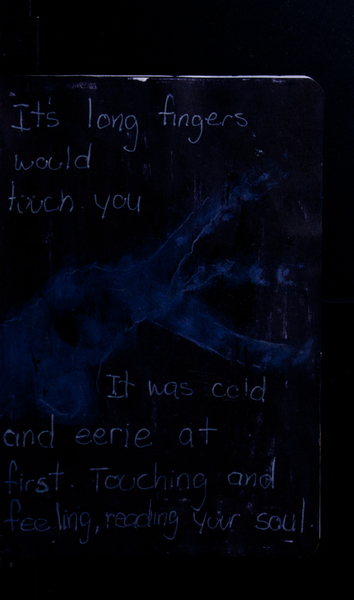 It's long fingers
would
touch you
It was cold
and eerie at
first. Touching and
feeling, reading your soul.